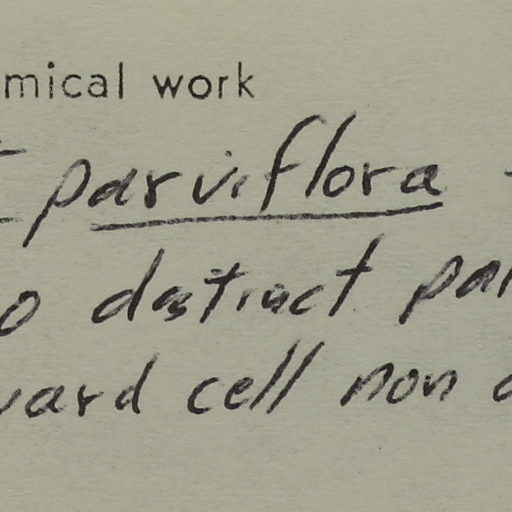 mical work
parviflora -
o distinct par
uard cell non